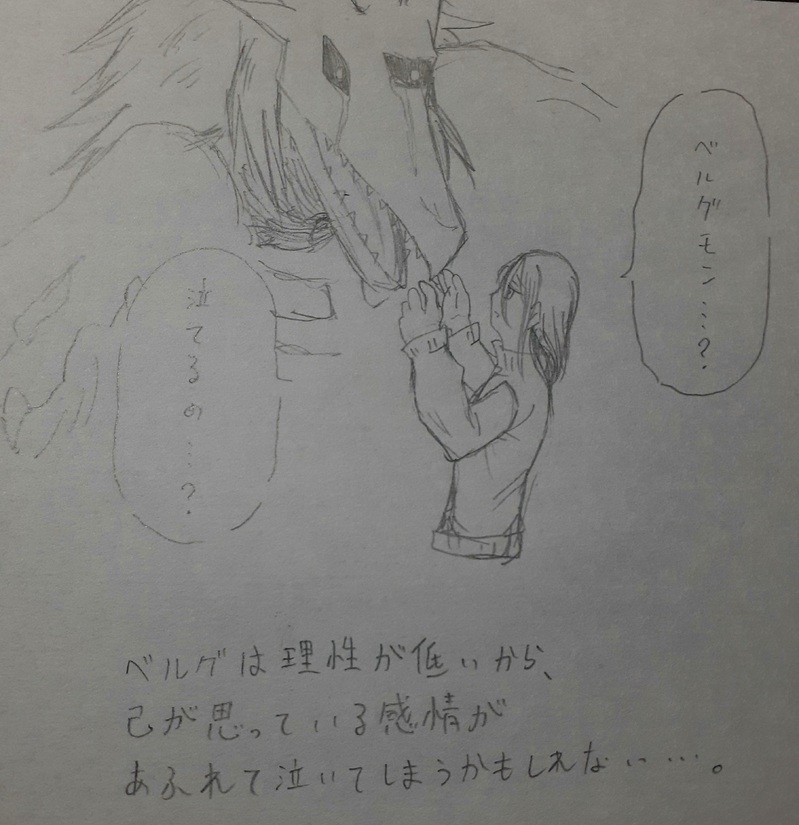 ベルグモン…?
泣てるの…?
ベルグは理性が低いから、
己が思っている感情が
あふれて泣いてしまうかもしれない…。